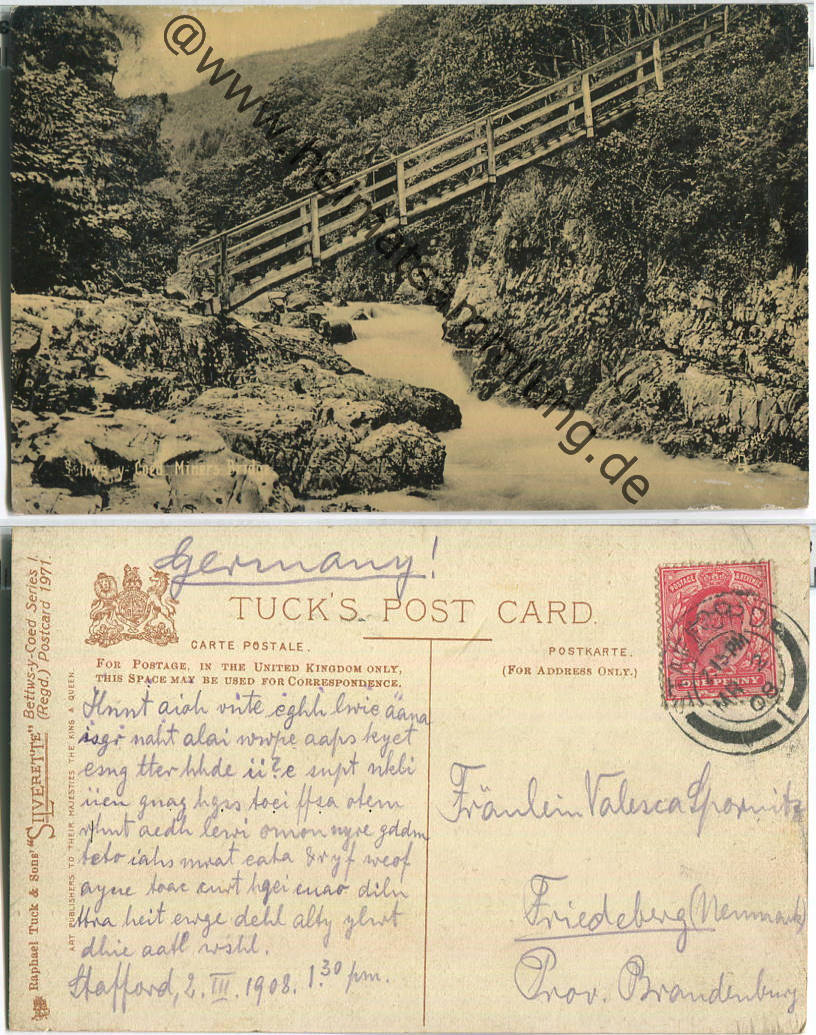 @www.heimatsammlung.de
Bettws-y-Coed. Miners Bridge.
Germany!
TUCK'S POST CARD.
CARTE POSTALE.
POSTKARTE.
FOR POSTAGE, IN THE UNITED KINGDOM ONLY,
THIS SPACE MAY BE USED FOR CORRESPONDENCE.
(FOR ADDRESS ONLY.)
Raphael Tuck & Sons' "SILVERETTE" Bettws-y-Coed Series I.
(Regd.) Postcard 1971.
ART PUBLISHERS TO THEIR MAJESTIES THE KING & QUEEN.
POSTAGE & REVENUE
ONE PENNY
2.15 PM
MR 2
08
Hnnt aioh vnte cghh lwie äana
isgr naht alai wwpe aaps keyet
esng tter hhde ii?e snpt nkbi
iien gnag hgss toei ffsa otem
rhnt aedh lewi omon nyre gddm
teto iahs mrat eata &ryf weof
ayne toac curt hgei enao diln
ttra heit ewge dehl alty ylwt
dhie aatl wshl.
Stafford, 2. III. 1908. 1.30 pm.
Fräulein Valesca Spornitz
Friedeberg (Neumark)
Prov. Brandenburg